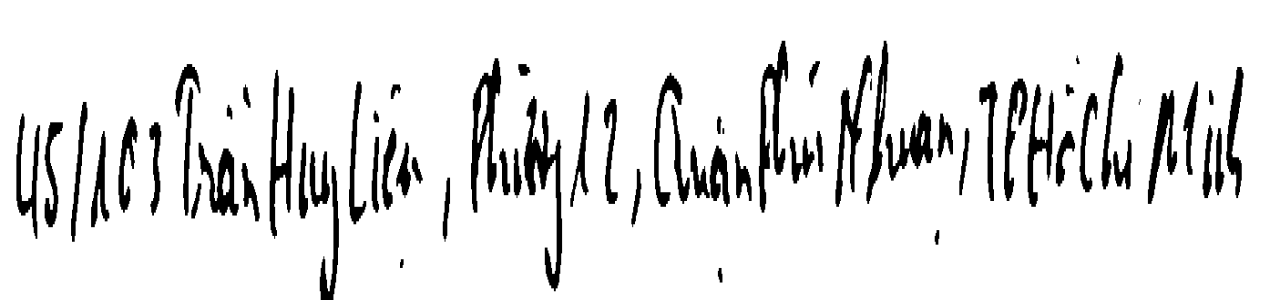 45/103 Trần Huy Liệu, Phường 12, Quận Phú Nhuận, TP Hồ Chí Minh